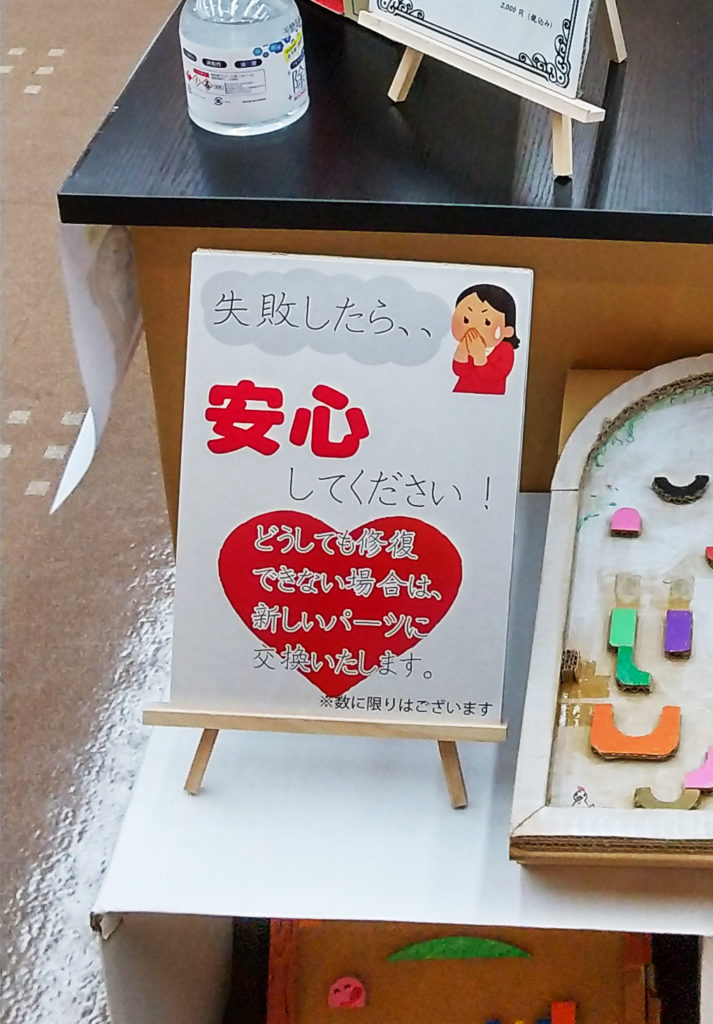 2,000 円 (税込み)
失敗したら、、
安心
してください！
どうしても修復
できない場合は、
新しいパーツに
交換いたします。
※数に限りはございます